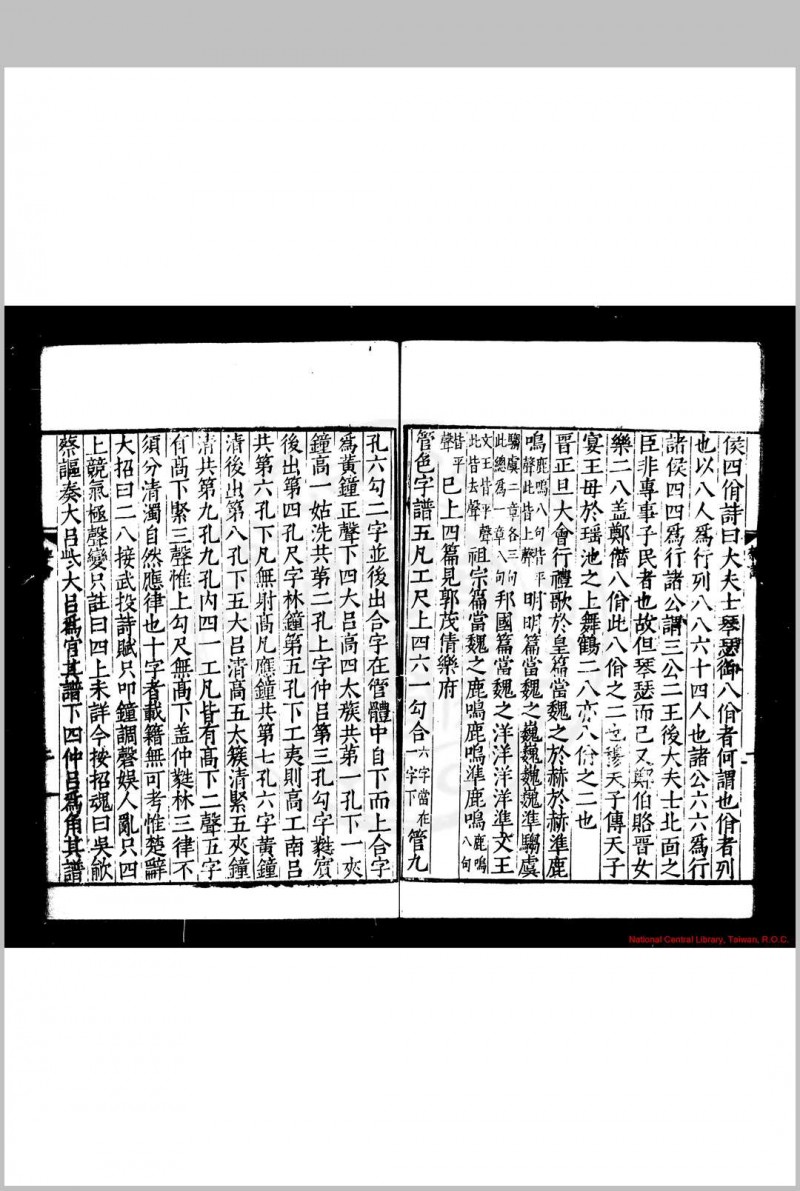 侯四佾詩曰大夫士琴瑟御八佾者何謂也佾者列
也以八人爲行列八八六十四人也諸公六六爲行
諸侯四四爲行諸公謂三公二王後大夫士北面之
臣非專事子民者也故但琴瑟而已又鄭伯賂晋女
樂二八盖鄭僭八佾此八佾之二也穆天子傳天子
宴王母於瑶池之上舞鶴二八亦八佾之二也
晋正旦大會行禮歌於皇篇當魏之於赫於赫準鹿
鳴鹿鳴八句皆平聲此皆上聲明明篇當魏之巍巍巍巍準騶虞
騶虞二章各三句此總爲一章八句邦國篇當魏之洋洋洋洋準文王
文王皆平聲此皆去聲祖宗篇當魏之鹿鳴鹿鳴準鹿鳴鹿鳴八句
皆平聲已上四篇見郭茂倩樂府
管色字譜五凡工尺上四六一勾合六字當在一字下管九
孔六勾二字並後出合字在管體中自下而上合字
爲黄鐘正聲下四大吕高四太簇共第一孔下一夾
鐘高一姑洗共第二孔上字仲吕第三孔勾字蕤賔
後出第四孔尺字林鐘第五孔下工夷則高工南吕
共第六孔下凡無射高凡應鐘共第七孔六字黄鐘
清後出第八孔下五大吕清高五太簇清緊五夾鐘
清共第九孔九孔内四一工凡皆有高下二聲五字
有高下緊三聲惟上勾尺無高下盖仲蕤林三律不
須分清濁自然應律也十字者載籍無可考惟楚辭
大招曰二八接武投詩賦只叩鐘調聲娱人亂只四
上競氣極聲變只註曰四上未詳今按招魂曰吳歈
蔡謳奏大吕此大吕爲宫其譜下四仲吕爲角其譜
National Central Library, Taiwan, R.O.C.